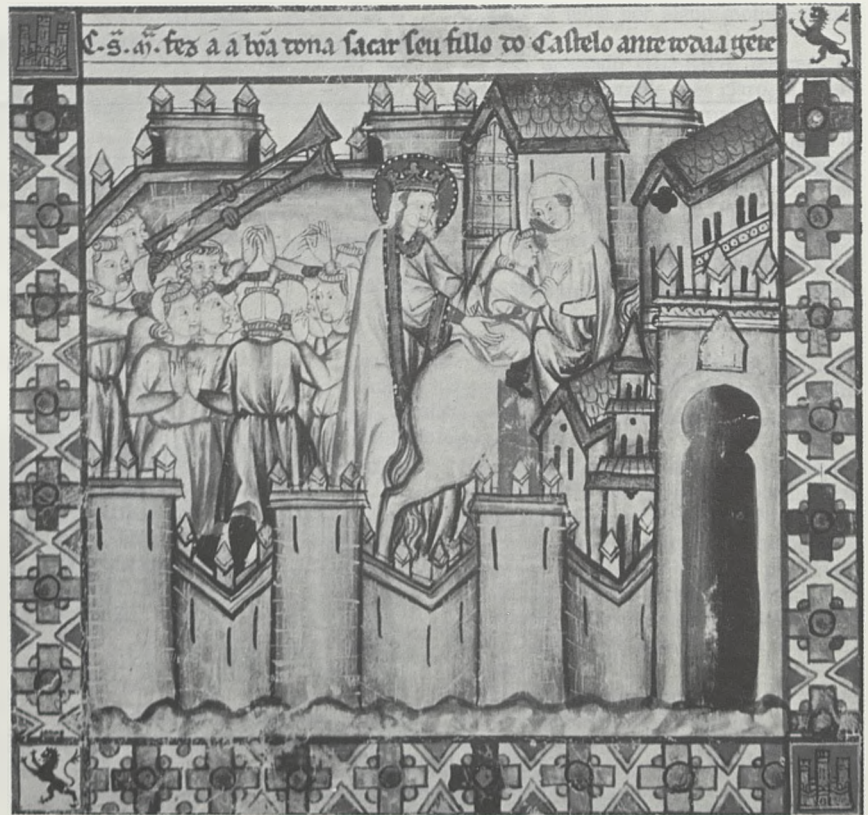 C·S̃·M̃· fez a a bõa dona sacar seu fillo do Castelo ante toda a gẽte